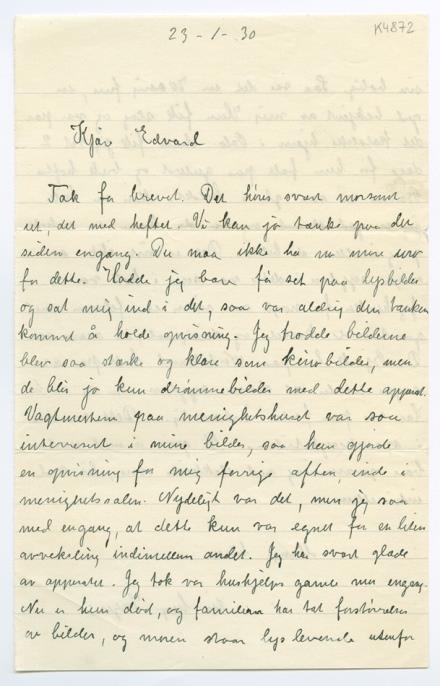 23 - 1 - 30
K4872
Kjær Edvard
Tak for brevet. Det høres svært morsomt
ut, det med heftet. Vi kan jo tænke paa det
siden engang. Du maa ikke ha no mere
for dette. Hadde jeg bare få set paa lysbilder
og sat mig ind i det, saa var aldrig den tanken
kommet å holde opvisning. Jeg trodde bilderne
blev saa stærke og klare som kinobilder, men
de blir jo kun drømmebilder med dette apparat.
Vagtmesteren paa menighetshuset var saa
interessert i mine bilder, saa han gjorde
en opvisning for mig forrige aften, inde i
menighetssalen. Nydeligt var det, men jeg saa
med engang, at dette kun var egnet for en liten
avveksling indimellem andet. Jeg har svært glæde
av apparatet. Jeg tok vor huskjelps gamle mor engang.
Nu er hun død, og familien har tat forstørrelse
av bilder, og moren staar lys levende utenfor